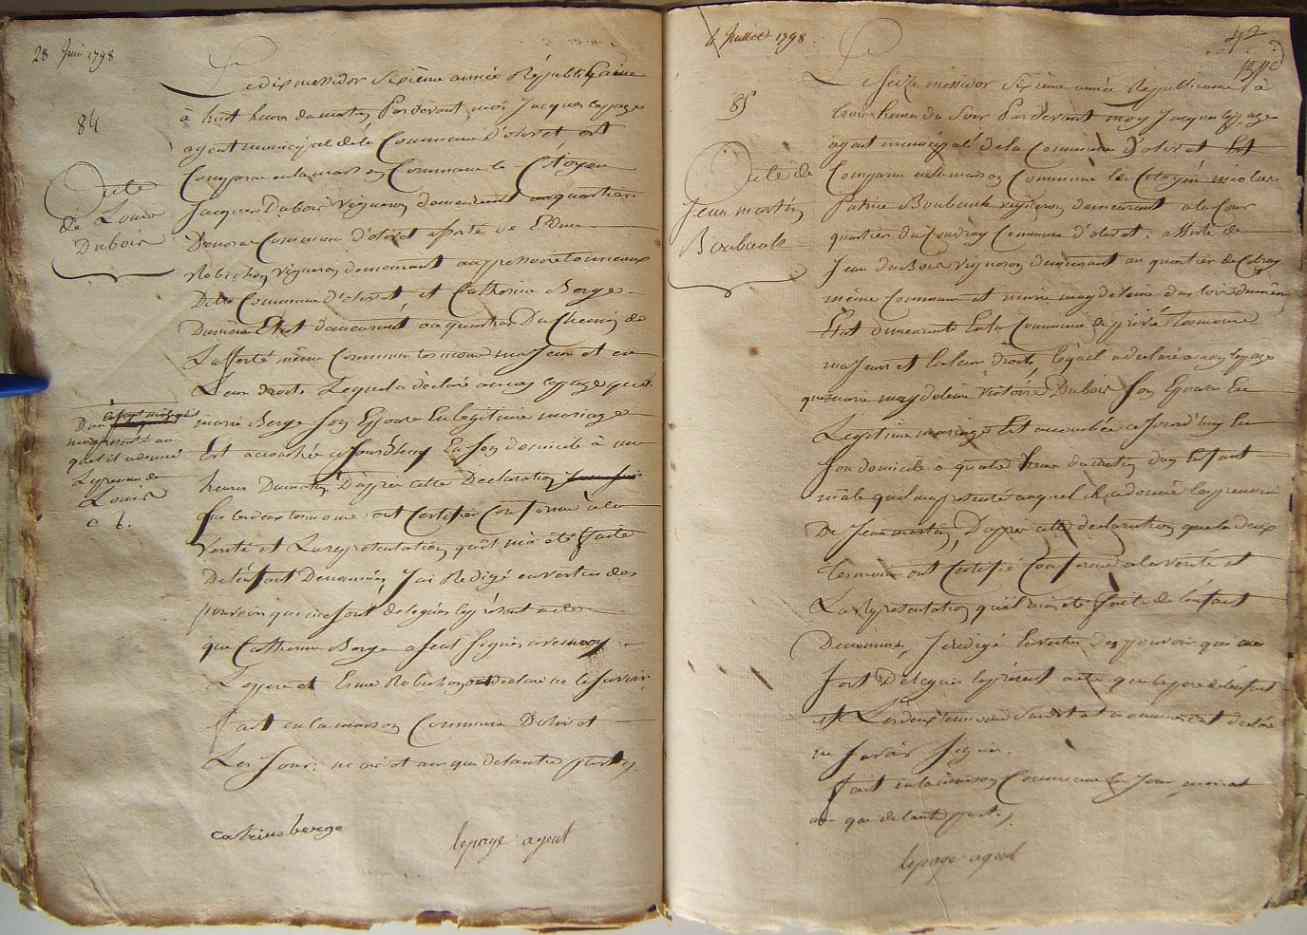 28 Juin 1798
84
acte
de Louis
Dubois
Le dix messidor sixième année Républiquaine
à huit heures du matin Pardevant moi Jacques lepage
agent municipal de la Commune d'olivet est
Comparu en la maison Commune le Citoyen
Jacques Dubois vigneron demeurant au quartier
Commune d'olivet assisté de Edme
Robichon vigneron demeurant au
Ditte Commune d'olivet, et Catherine Berge
demeurant au quartier Du Chemin de
Lafferté même Commune temoins majeurs et en
Leur droits Lequel a déclaré a moy lepage que
marie Berge son Epouse En légitime mariage
Est accouchée ce jourd'huy En son domicile à
heures Du matin D'après cette Declaration
que les deux temoins ont Certifié Conforme à la
Verité et La représentation qu'il m'a été faite
De l'enfant Denommé, J'ai Redigé en vertu des
pouvoirs qui me sont delegués le présent acte
que Catherine Berge a seul signé avec moy
Le pere et Esme Robichon ont declaré ne le savoir
fait en la maison Commune D'olivet
Les Jour, mois et an que de l'autre part
D'un
quel il a donné
Le prenom de
Louis
catrine berge
lepage agent
4 Juillet 1798
42
85
acte de
Jean martin
Boubault
Le seize messidor sixième année Republicaine à
trois heures du soir Pardevant moy Jacques lepage
agent municipal de la Commune D'olivet Est
Comparu en la maison Commune le Citoyen nicolas
Patrice Boubault vigneron demeurant a la Cour
quartier du Coudray Commune d'olivet, assisté de
Jean Dubois vigneron demeurant au quartier de
même Commune et marie magdeleine
Etat demeurant En la Commune de privé temoins
majeurs et En leur droits, lequel a declaré a moy lepage
que marie magdeleine victoire Dubois son Epouse En
Légitime mariage Est accouchée ce jourd'huy En
son domicile a quatre heure du matin d'un Enfant
mâle qu'il m'a presenté auquel il a donné les prenoms
De Jean martin, D'après cette declaration que les deux
temoins ont Certifié Conforme a la verité et
La representation qu'il m'a été faite de l'enfant
Denommé, J'ai redigé En vertu des pouvoirs qui me
sont Delegués le présent acte que le pere de l'enfant
et Les deux temoins ont declaré
ne savoir signer.
fait en la maison Commune les Jour, mois et
an que de l'autre part,
lepage agent